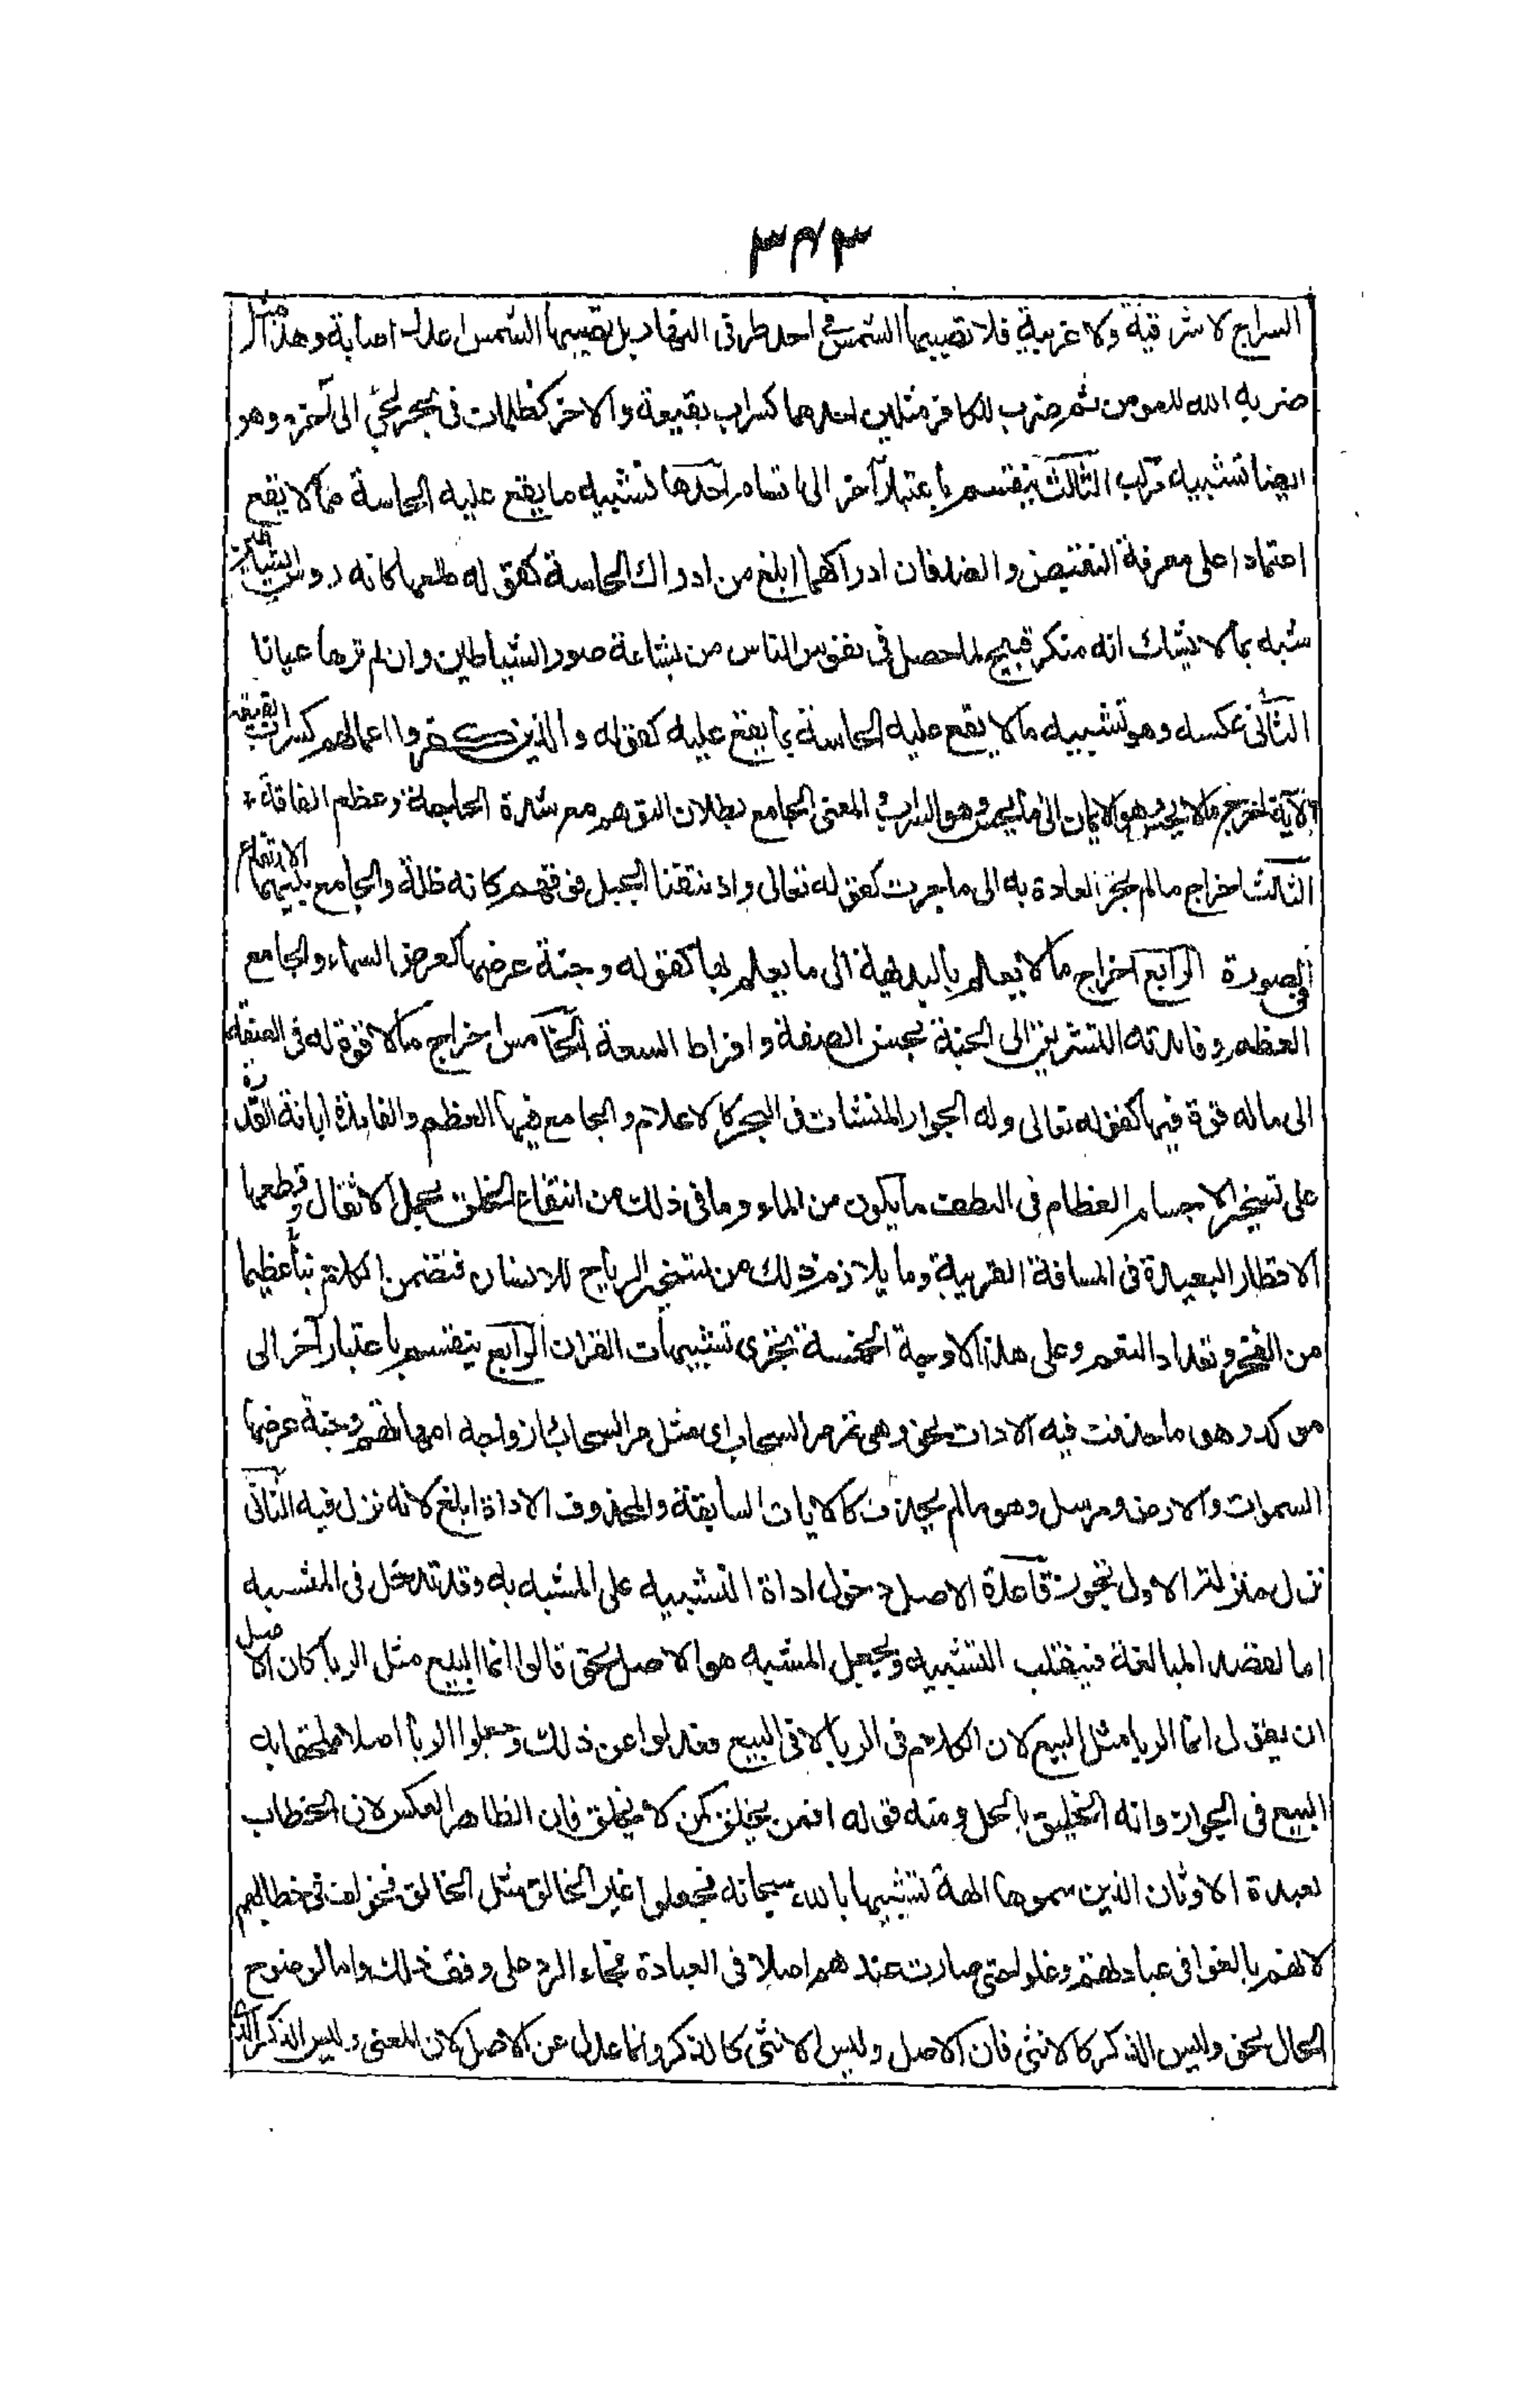 ٣٧٣
السراج لا شرقية ولا غربية فلا تصيبها الشمس في احد طرفى النهار بل تصيبها الشمس اعدل اصابة وهذا مثل
ضربه الله للمومن ثم ضرب للكافر مثلين احدهما كسراب بقيعة والاخر كظلمات فى بحر لجي الى آخره وهو
ايضا تشبيه تركيب الثالث ينقسم باعتبار آخر الى اقسام احدها تشبيه ما يقع عليه الحاسة بما لا يقع
اعتمادا على معرفة النقيض والضد فان ادراكهما ابلغ من ادراك الحاسة كقوله طلعها كانه رءوس الشياطين
شبه بما لا يشك انه منكر قبيح لما حصل فى نفوس الناس من بشاعة صور الشياطين وان لم ترها عيانا
الثانى عكسه وهو تشبيه ما لا يقع عليه الحاسة بما يقع عليه كقوله والذين كفروا اعمالهم كسراب بقيعة
الآية اخرج ما لا يحس وهو الايمان الى ما يحس وهو السراب و المعنى الجامع بطلان التوهم مع شدة الحاجة وعظم الفاقة *
الثالث اخراج ما لم تجر العادة به الى ما جرت كقوله تعالى واذ نتقنا الجبل فوقهم كانه ظلة والجامع بينهما الارتفاع
فى الصورة الرابع اخراج ما لا يعلم بالبداهة الى ما يعلم بها كقوله وجنة عرضها كعرض السماء والجامع
العظم وفائدته التشريق الى الجنة بحسن الصفة وافراط السعة الخامس اخراج ما لا قوة له فى الصفة
الى ما له قوة فيها كقوله تعالى وله الجوار المنشات فى البحر كالاعلام والجامع فيها العظم والفائدة ابانة القدرة
على تسخير الاجسام العظام فى الطف ما يكون من الماء وما فى ذلك من انتفاع الخلق بحمل الاثقال وقطعها
الاقطار البعيدة فى المسافة القريبة وما يلازم ذلك من تسخير الرياح للانسان فتضمن الكلام بناء عظيما
من الفخر وتعداد النعم وعلى هذا الاوجه الخمسة تجرى تشبيهات القران الرابع ينقسم باعتبار آخر الى
موكد وهو ما حذفت فيه الادات نحو وهى تمر مر السحاب اى مثل مر السحاب وازواجه امهاتهم وجنة عرضها
السموات والارض ومرسل وهو ما لم يحذف كالايات السابقة والمحذوف الاداة ابلغ لانه نزل فيه الثانى
نزل منزلة الاول تجوزا قاعدة الاصل دخول اداة التشبيه على المشبه به وقد تدخل فى المشبه
اما لقصد المبالغة فينقلب التشبيه ويجعل المشبه هو الاصل نحو قالوا انما البيع مثل الربا كان الاصل
ان يقول انما الربا مثل البيع لان الكلام فى الربا لا فى البيع فعدلوا عن ذلك وجعلوا الربا اصلا ملحقا به
البيع فى الجواز وانه الخليق بالحل ومنه قوله افمن يخلق كمن لا يخلق فان الظاهر العكس لان الخطاب
لعبدة الاوثان الذين سموها الهة تشبيها بالله سبحانه فجعلوا غير الخالق مثل الخالق فخولف فى خطابهم
لانهم بالغوا فى عبادتهم وغلوا حتى صارت عندهم اصلا فى العبادة فجاء الرد على وفق ذلك واما لوضوح
الحال نحو وليس الذكر كالانثى فان الاصل وليس الانثى كالذكر وانما عدل عن الاصل لان المعنى وليس الذكر الذى